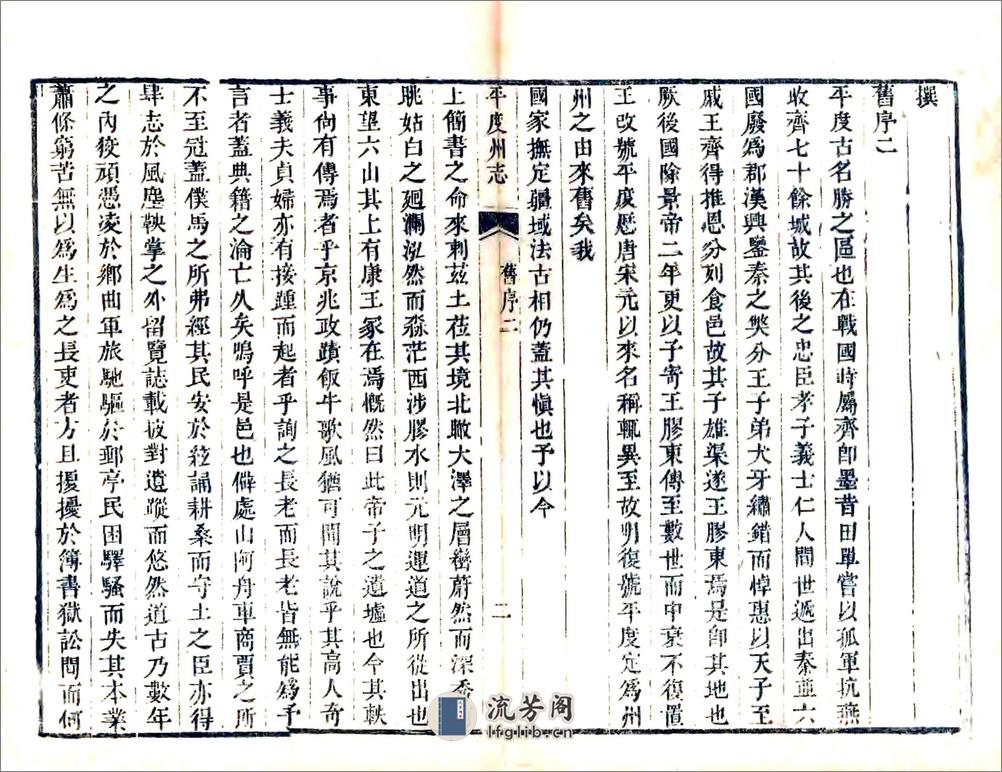 撰
舊序二
平度古名勝之區也在戰國時屬齊卽墨昔田單嘗以孤軍抗燕
收齊七十餘城故其後之忠臣孝子義士仁人間世遞出秦並六
國廢爲郡漢興鑒秦之獘分王子弟犬牙繡錯而悼惠以天子至
戚王齊得推恩分列食邑故其子雄渠遂王膠東焉是卽其地也
厥後國除景帝二年更以子寄王膠東傳至數世而中衰不復置
王改號平度歷唐宋元以來名稱輒異至故明復號平度定爲州
州之由來舊矣我
國家撫定疆域法古相仍蓋其愼也予以今
平度州志
舊序二
二
上簡書之命來刺茲土莅其境北瞰大澤之層巒蔚然而深秀
眺姑白之廻瀾泓然而淼茫西涉膠水則元明運道之所從出也
東望六山其上有康王冢在焉慨然曰此帝子之遺墟也今其軼
事尙有傳焉者乎京兆政蹟飯牛歌風猶可聞其說乎其高人奇
士義夫貞婦亦有接踵而起者乎詢之長老而長老皆無能爲予
言者蓋典籍之淪亡久矣嗚呼是邑也僻處山阿舟車商賈之所
不至冠蓋僕馬之所弗經其民安於絃誦耕桑而守土之臣亦得
肆志於風塵鞅掌之外留覽誌載披對遺蹤而悠然道古乃數年
之內狡頑憑凌於鄉曲軍旅馳驅於郵亭民困驛騷而失其本業
蕭條窮苦無以爲生爲之長吏者方且擾擾於簿書獄訟問而何
流芳阁
lfglib.cn